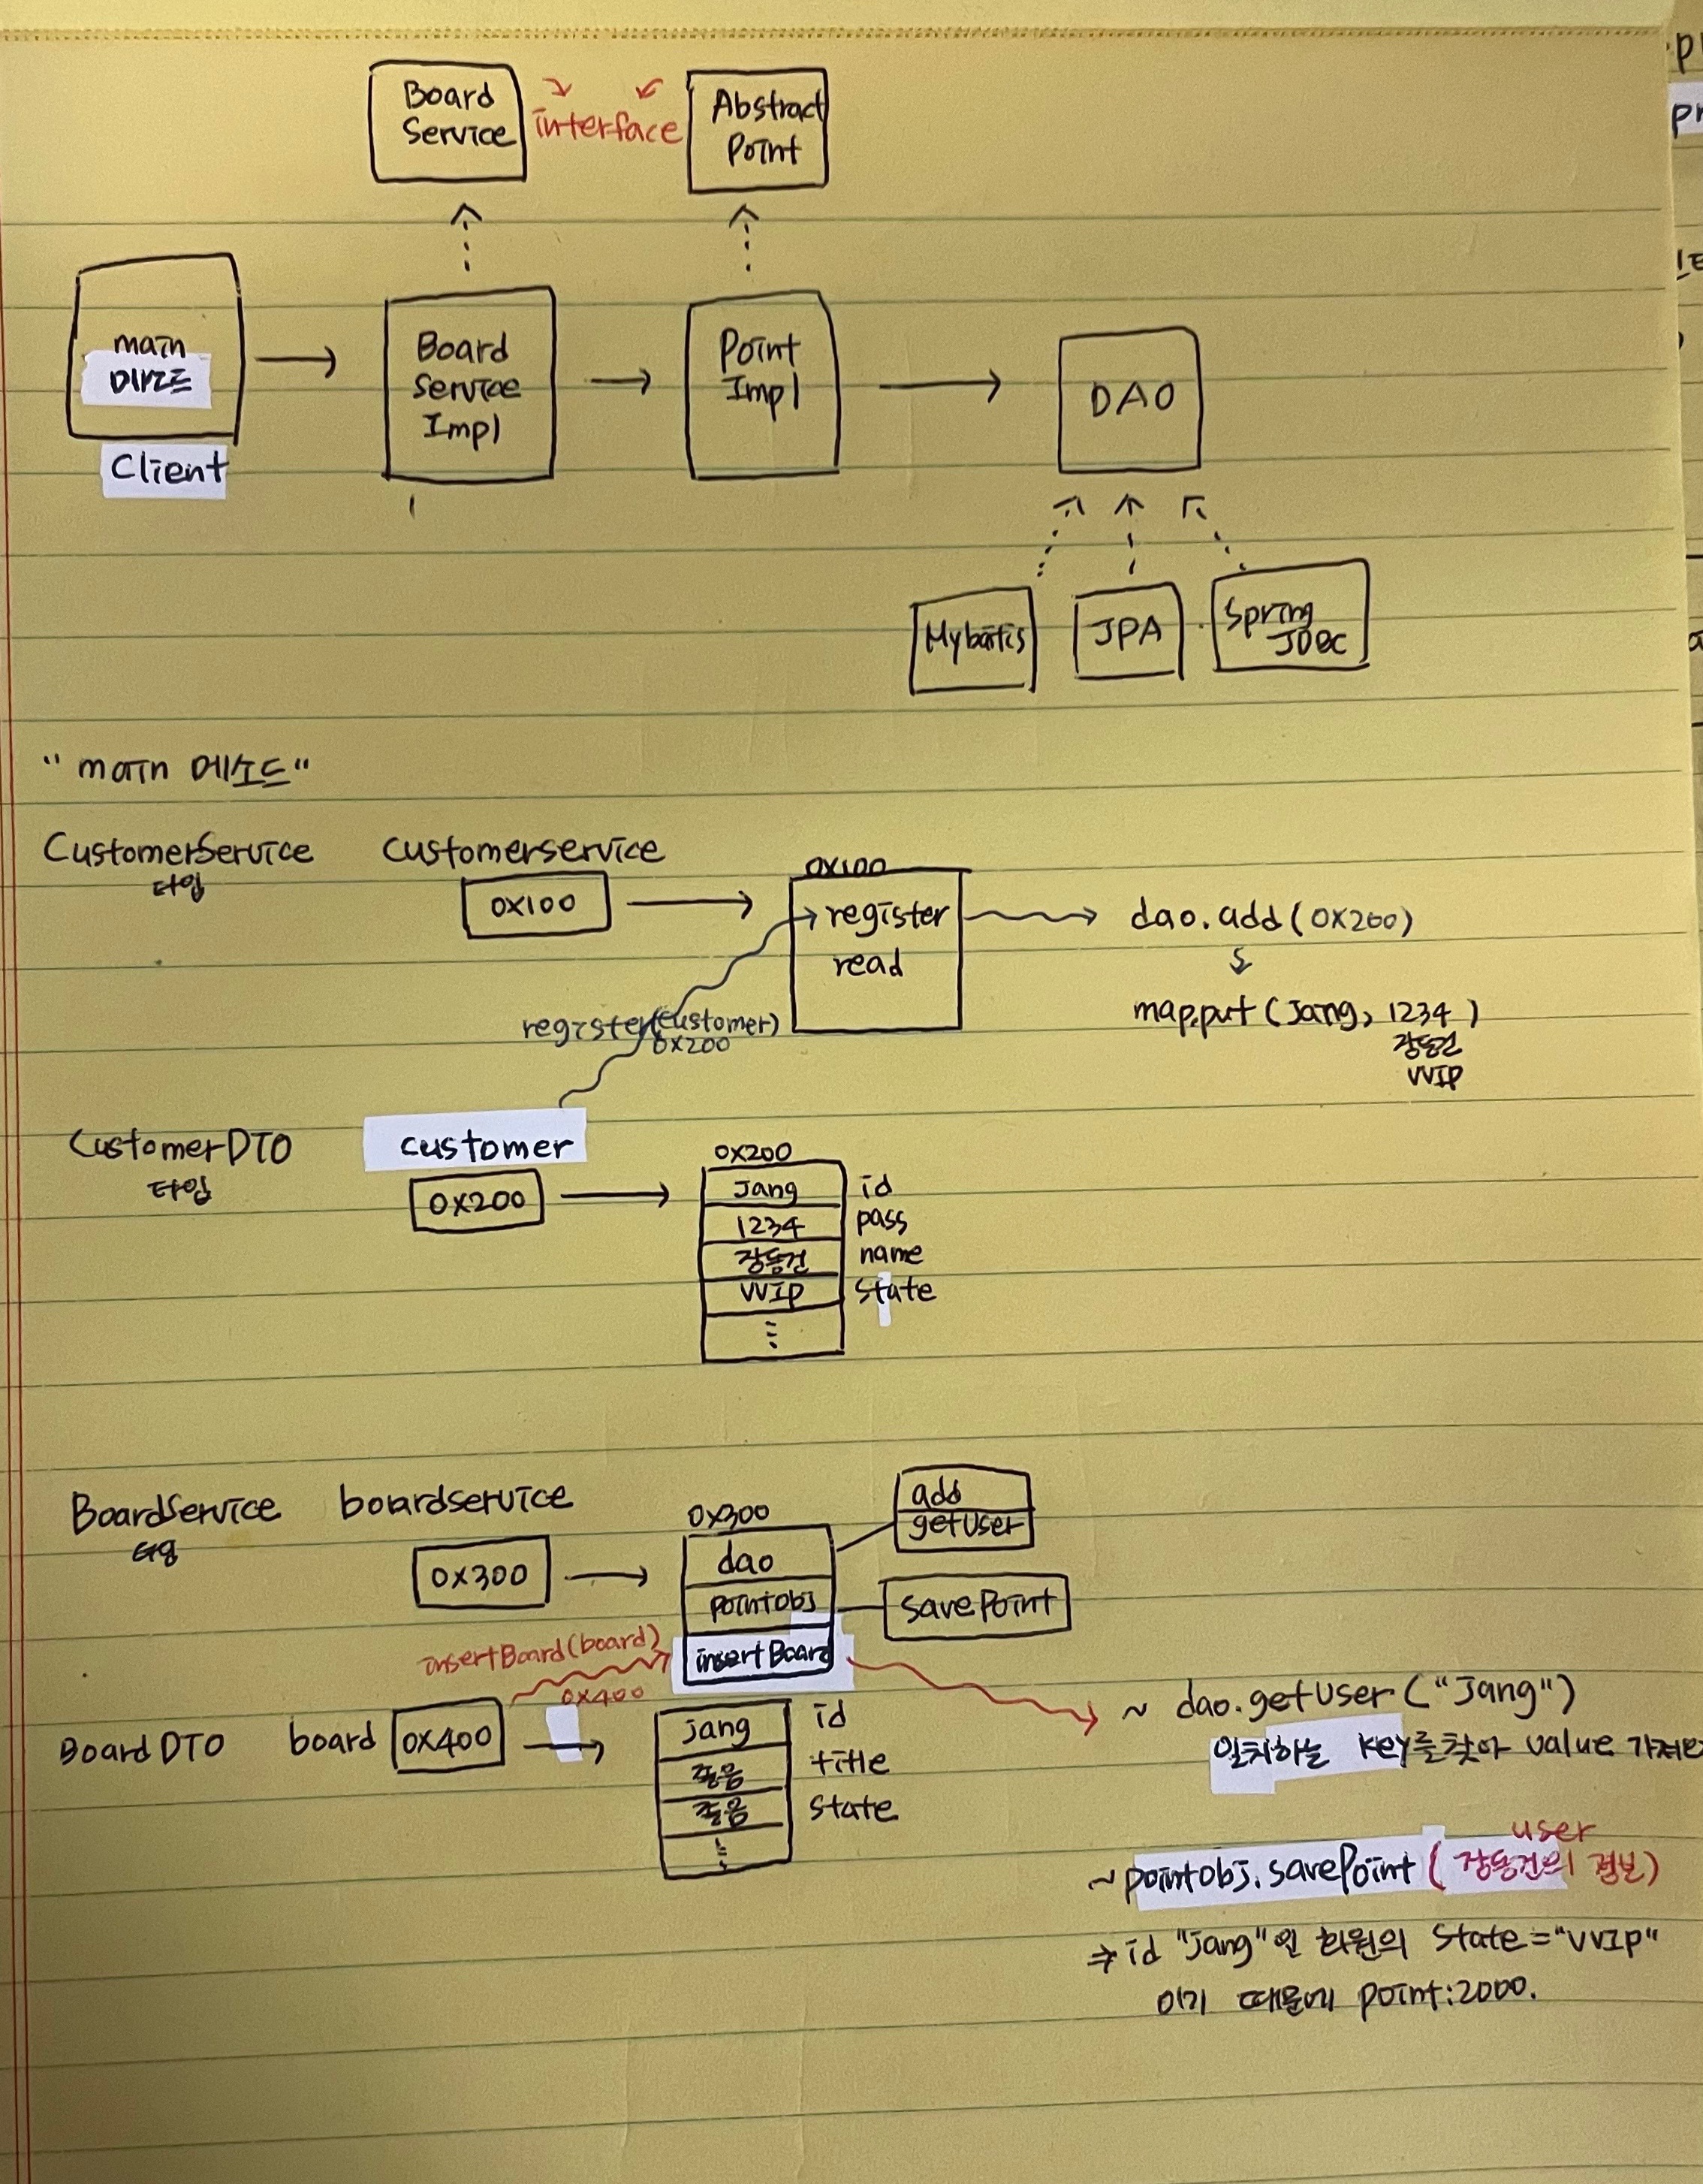 Board
Service
interface
Abstract
Point
main
Client
Board
Service
Impl
Point
Impl
DAO
Mybatis
JPA
Spring
JDBC
"main 메소드"
CustomerService
타입
customerservice
0X100
0X100
register
read
dao.add(0X200)
map.put(Jang, 1234)
장동건
VVIP
register(customer)
0X200
CustomerDTO
타입
customer
0X200
0X200
Jang
id
1234
pass
장동건
name
VVIP
state
BoardService
타입
boardservice
0X300
0X300
dao
pointobj
insertBoard
add
getUser
savePoint
insertBoard(board)
0X400
Board DTO
board
0X400
jang
id
좋음
title
좋음
state
~ dao.getUser("Jang")
일치하는 key를 찾아 value
user
~pointobj.savePoint(장동건의 정보)
⇒ id "jang"인 회원의 state="VVIP"
이기 때문에 point:2000.